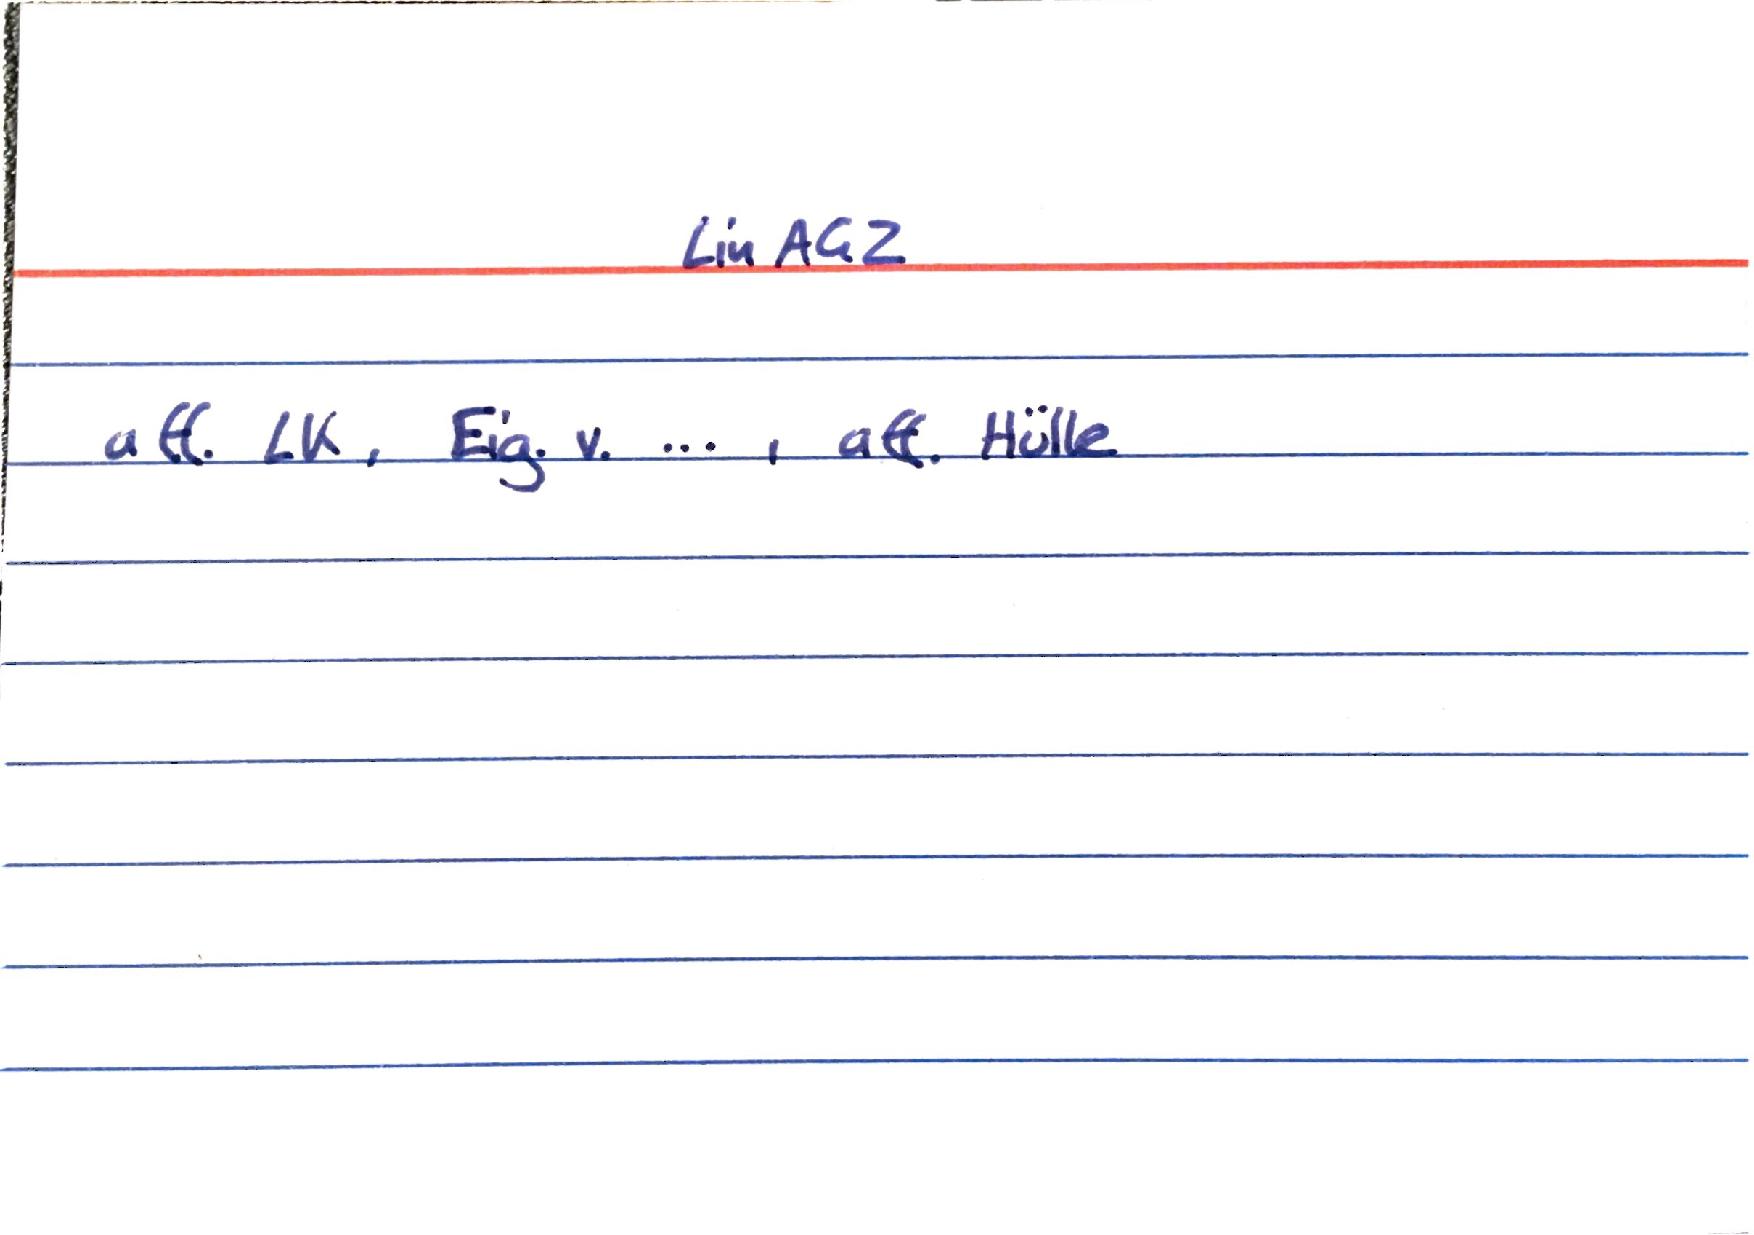 Lin AG 2
aff. LK, Eig. v. ..., aff. Hülle